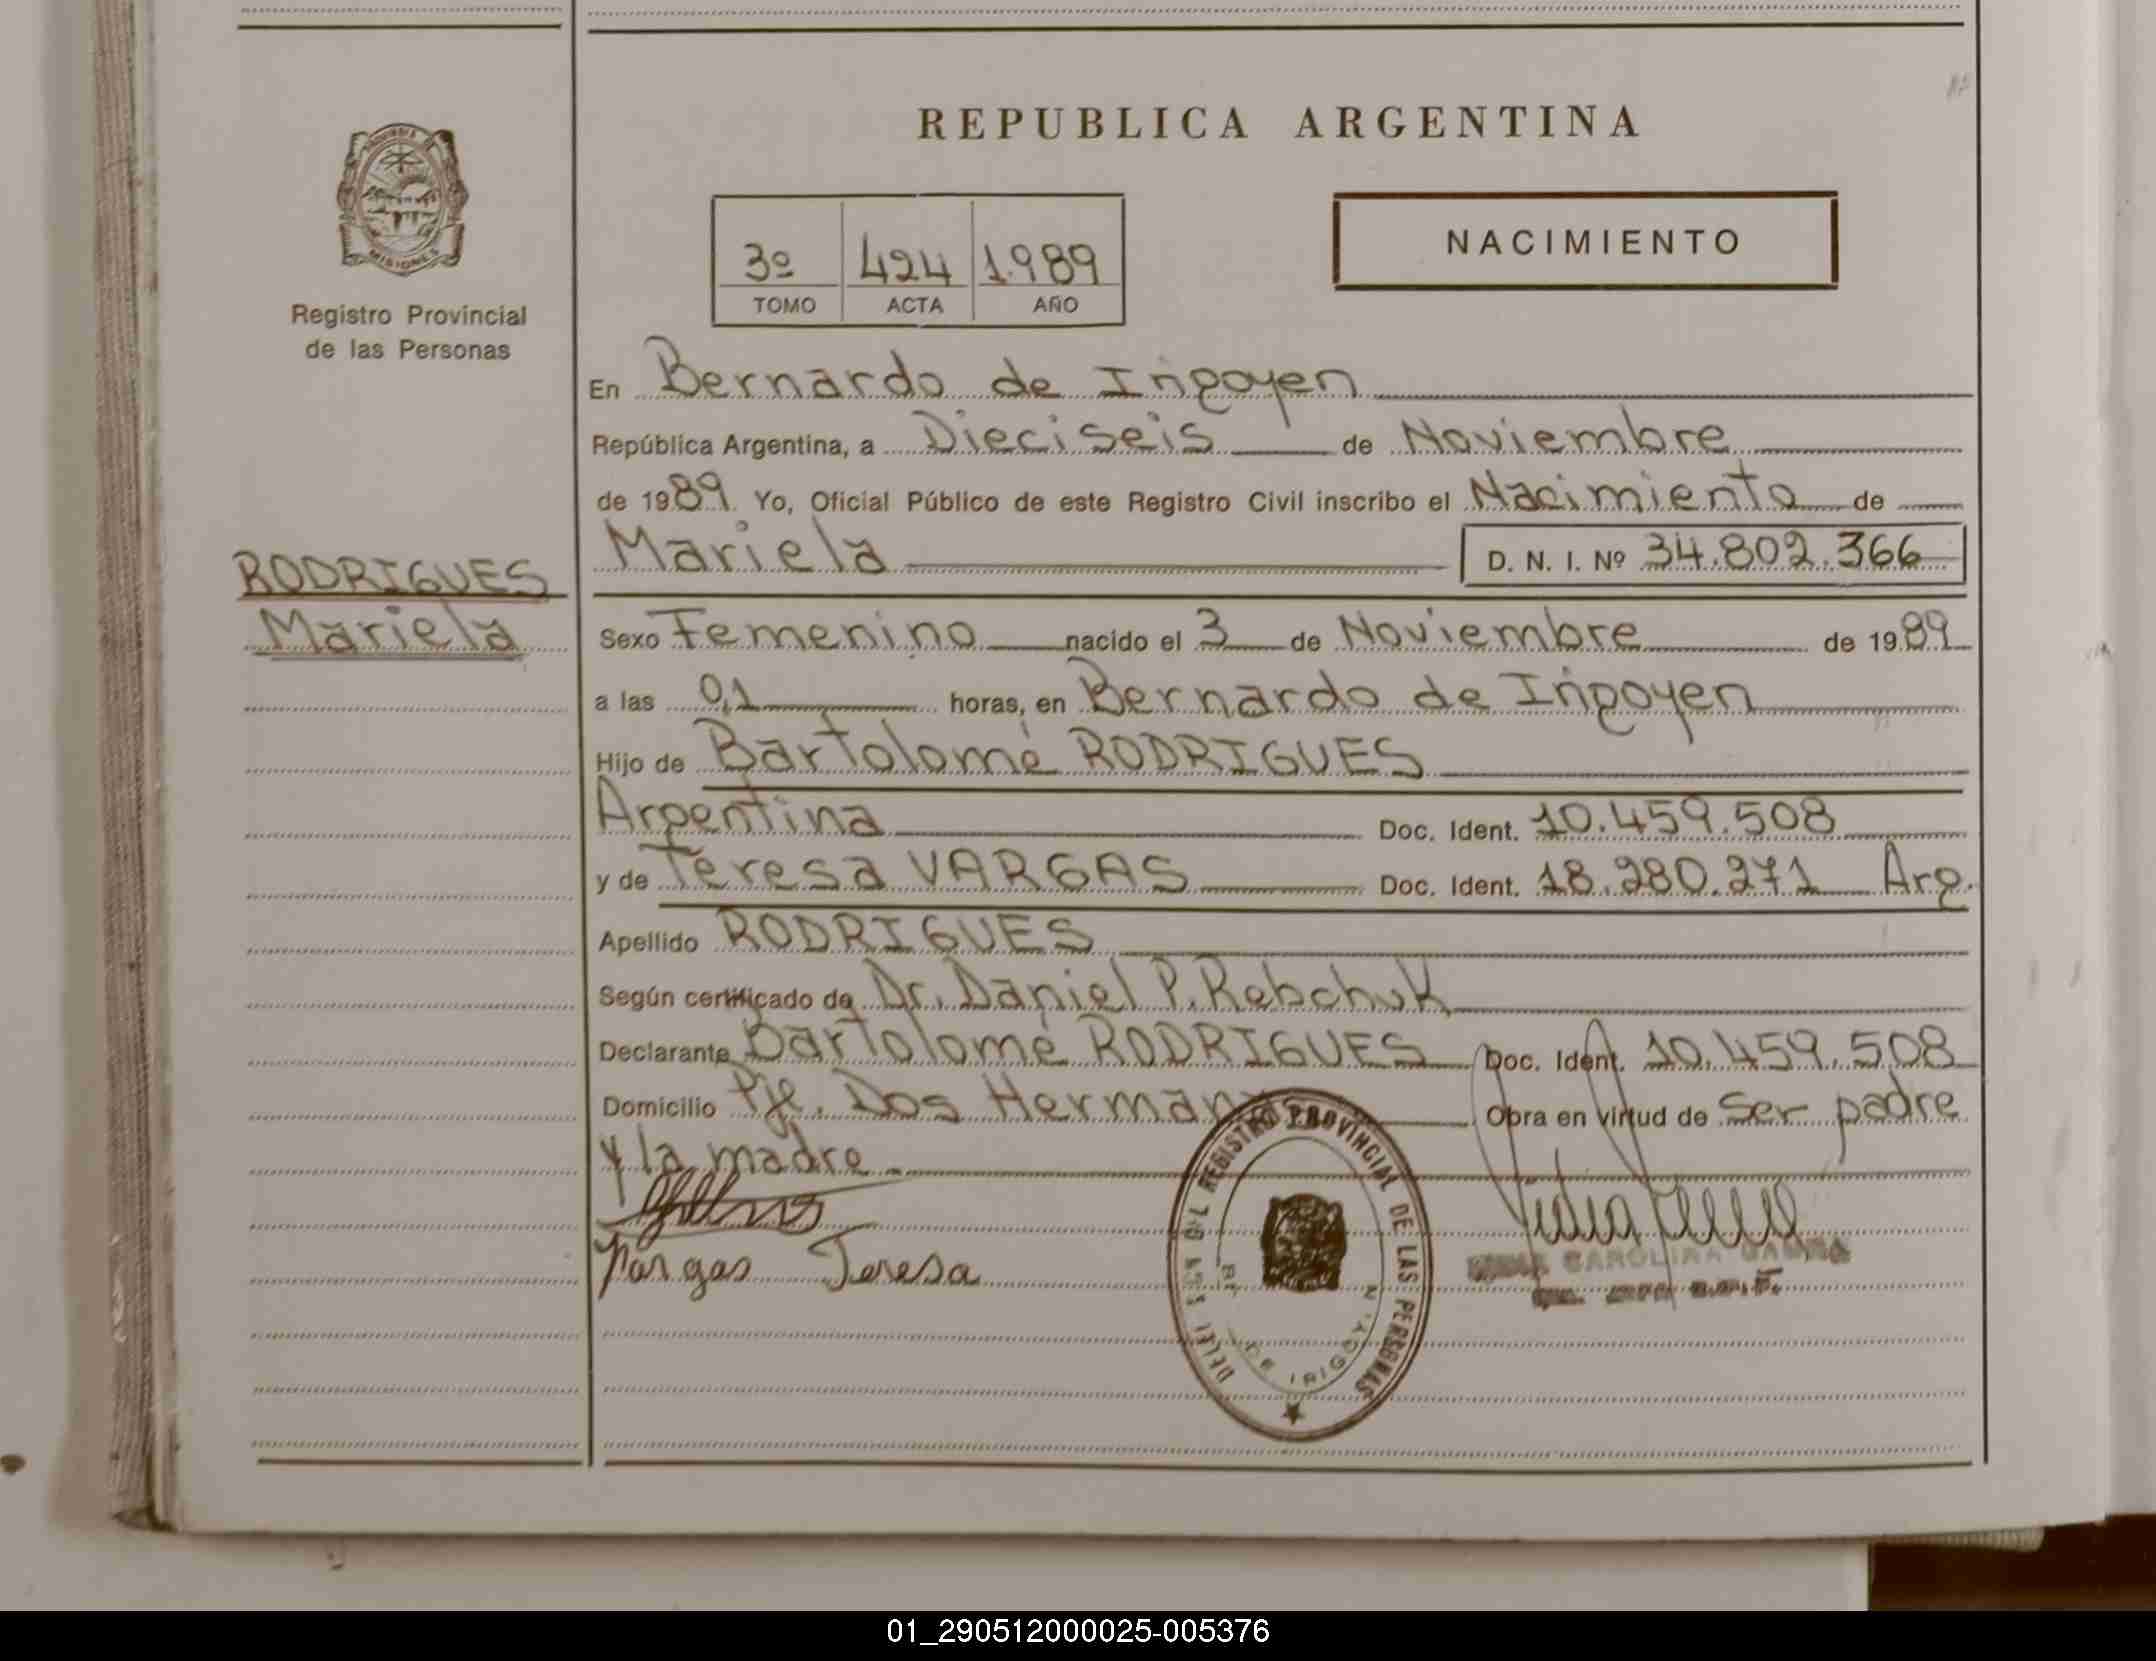 REPUBLICA ARGENTINA
MISIONES
Registro Provincial
de las Personas
3º 424 1.989
TOMO ACTA AÑO
NACIMIENTO
En Bernardo de Irigoyen
República Argentina, a Dieciseis de Noviembre
de 1989 Yo, Oficial Público de este Registro Civil inscribo el Nacimiento de
Mariela D. N. I. Nº 34.802.366
RODRIGUES
Mariela
Sexo Femenino nacido el 3 de Noviembre de 1989
a las 0,1 horas, en Bernardo de Irigoyen
Hijo de Bartolomé RODRIGUES
Argentina Doc. Ident. 10.459.508
y de Teresa VARGAS Doc. Ident. 18.280.271 Arg.
Apellido RODRIGUES
Según certificado de Dr. Daniel P. Rebchuk
Declarante Bartolomé RODRIGUES Doc. Ident. 10.459.508
Domicilio Pje. Dos Hermanas Obra en virtud de ser padre
y la madre
Vargas Teresa
REGISTRO PROVINCIAL DE LAS PERSONAS
DE IRIGOYEN
CAROLINA
01_290512000025-005376